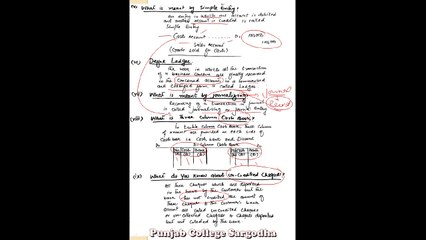 (v) What is meant by Simple Entry?
An entry in which one account is debited
and another account is credited is called
Simple Entry
Cash Account Dr.
Sales Account
(Goods Sold for Cash)
(vi) Define Ledger.
The book in which all the transaction
of a business are finally recorded
in the concerned account in a summarized
and classified form is called Ledger
(vii) What is meant by journalizing?
Recording of a transaction in journal
is called journalizing or journal Entry
Record
(viii) What is Three Column Cash Book?
In Double Column Cash Book, Three Column
of amount are provided on each side of
Cash book i.e. Cash, bank and Discount
3-Column Cash Book
(ix) What do you know about un-Credited Cheques?
Those Cheques which are deposited
in the bank by the customer but the
bank has not credited the amount of
these cheques to the customer's bank
account are called uncredited cheques
or un-collected cheques or cheques deposited
but not collected by the bank
Punjab College Sargodha